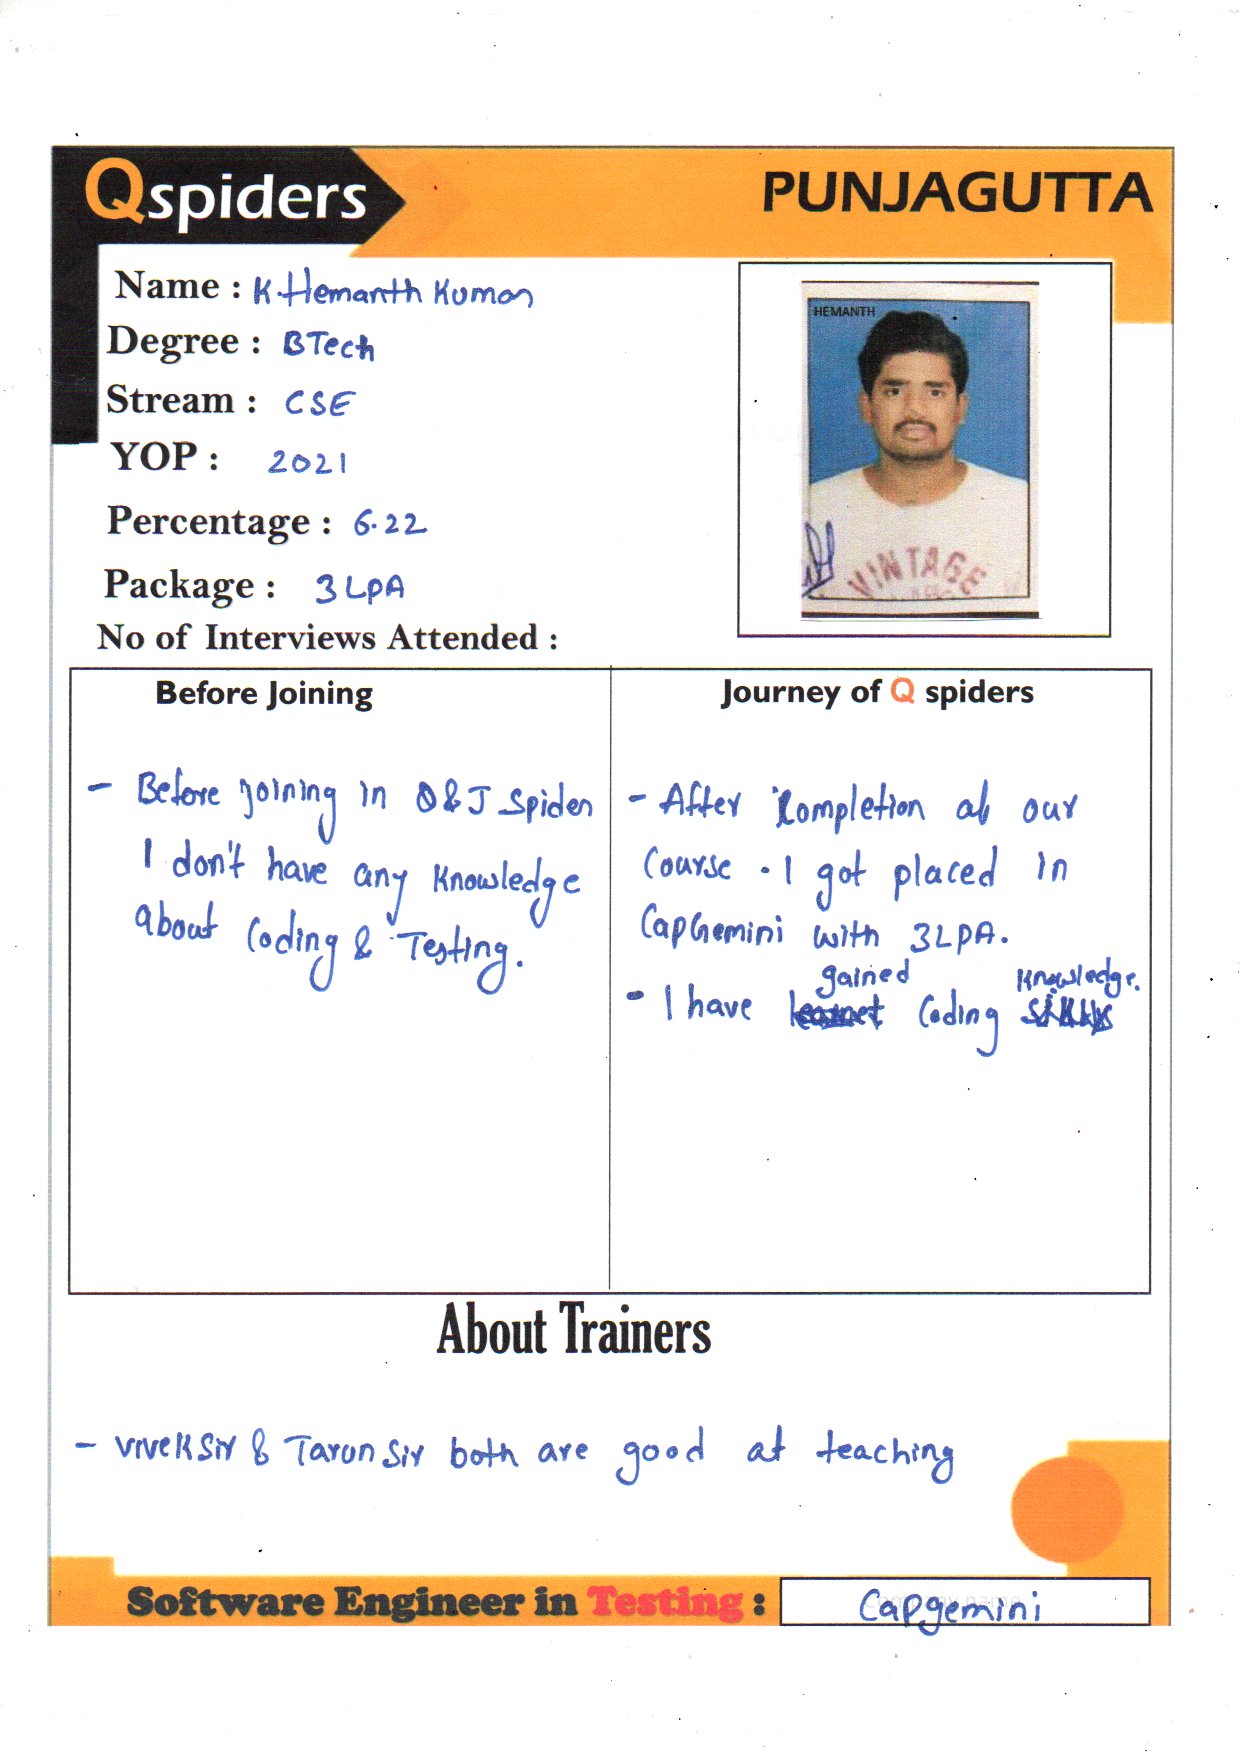 Qspiders
PUNJAGUTTA
Name : K. Hemanth Kumar
Degree : BTech
Stream : CSE
YOP : 2021
Percentage : 6.22
Package : 3 LPA
No of Interviews Attended :
HEMANTH
VINTAGE
Before Joining
- Before Joining in Q & J Spider
I don't have any Knowledge
about Coding & Testing.
Journey of Q spiders
- After Completion of our
Course . I got placed in
CapGemini with 3LPA.
gained Knowledge.
- I have learnet Coding skills
About Trainers
- Vivek Sir & Tarun Sir both are good at teaching
Software Engineer in Testing : Capgemini